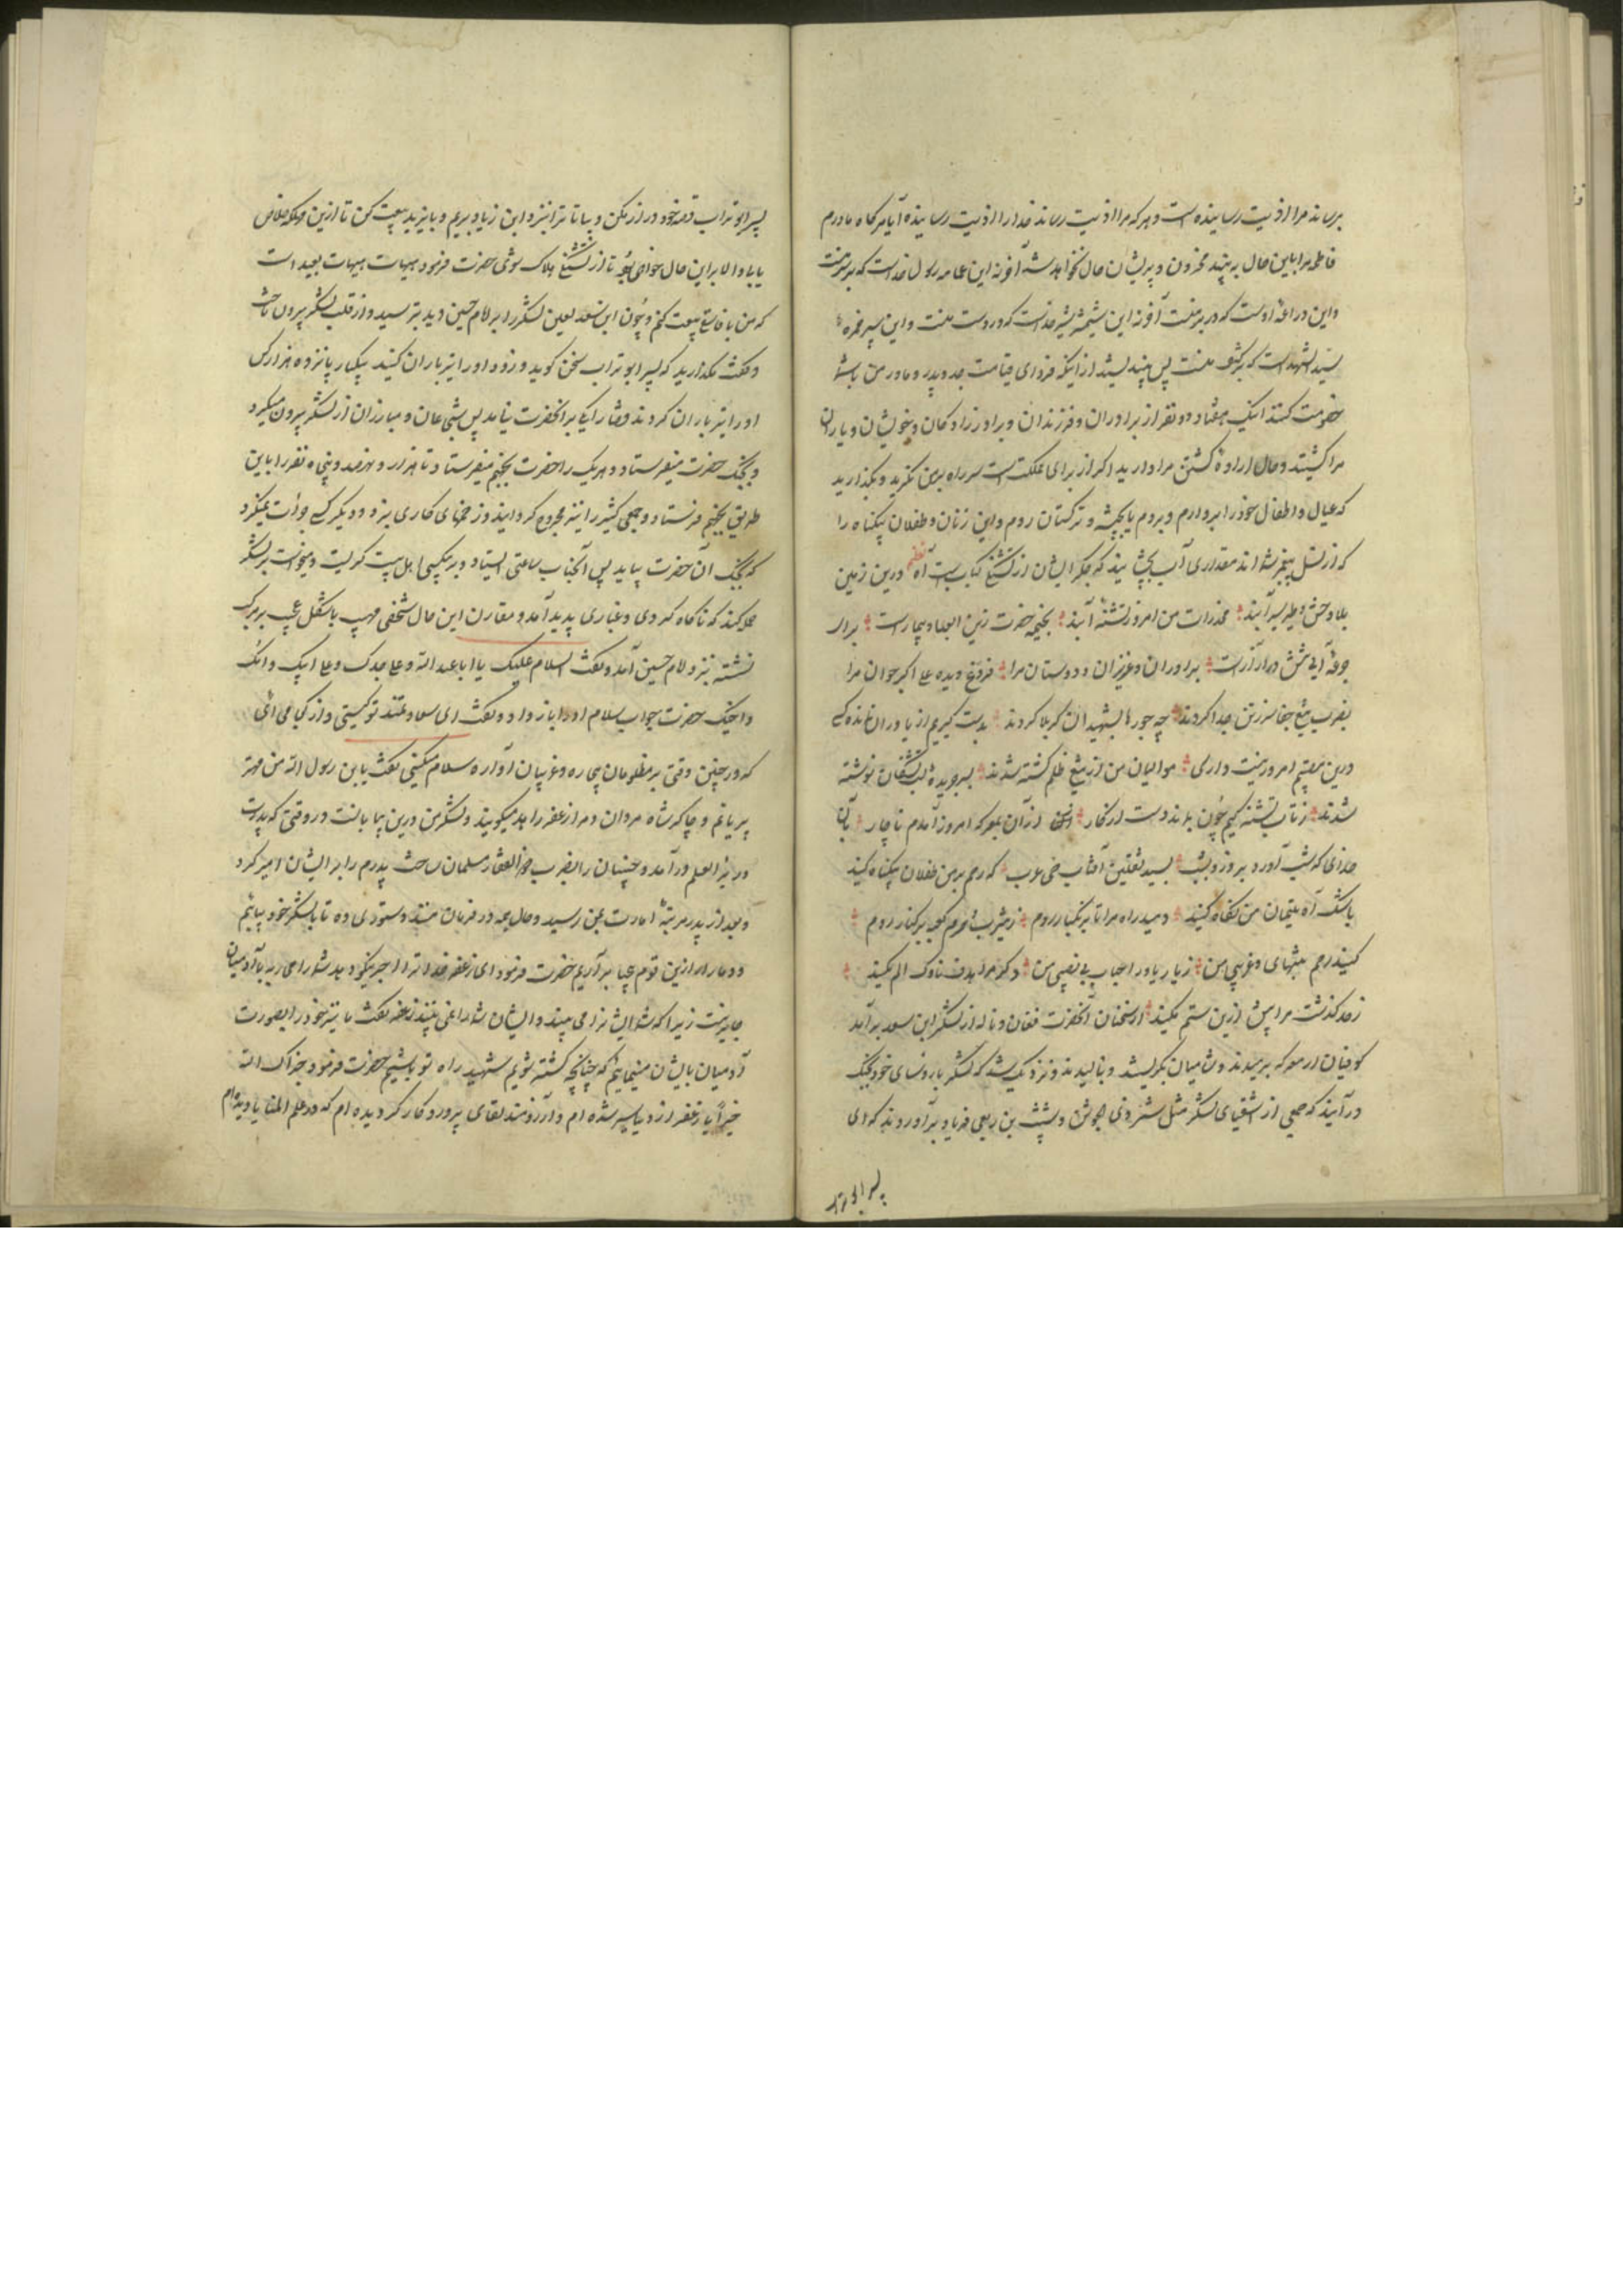 برساند مرا اذیت رسانیده است و هر که مرا اذیت رساند خدا را اذیت رسانیده آیا هرگاه مادرم
فاطمه مرا باین حال به بیند محزون و پریشان حال نخواهد شد آخر نه این عمامه رسول خداست که بر سر منست
و این دراعه اوست که در بر منست آخر نه این شمشیر شیر خداست که در دست منست و این سپر حمزه
سید الشهداست که بر کتف منست پس اندیشید از اینکه فردای قیامت جد و پدر و مادر من باشما
خصومت کنند اینک هفتاد دو نفر از برادران و فرزندان و برادر زادگان و خویشان و یاران
مرا کشتید و حال اراده کشتن مرا دارید اگر از برای مملکت است سر راه بر من نگیرید و بگذارید
که عیال و اطفال خود را بردارم و بروم یا بحبشه و ترکستان روم و این زنان و طفلان بیگناه را
که از تشنگی بیخبر شده اند مقداری آب بچشانید که جگر ایشان از تشنگی کباب است آه نظم درین زمین
بلا وحش و طیر سیرآبند مخدرات من امروز تشنه آبند بخیمه حضرت زین العباد بیمار است برای
جرعه آبی بمن در آزار است برادران و عزیزان و دوستان مرا فروغ دیده علی اکبر جوان مرا
بضرب تیغ جفا سر ز تن جدا کردند چه جورها بشهیدان کربلا کردند بدست گیریم از یاوران نمانده کسی
درین مقیم امروز نیست داری موالیان من از تیغ ظلم کشته شدند بسر بریده لب تشنگان نوشته
شدند ز تاب تشنه کیم چون نماند دست از کار از آن بمعرکه امروز آمدم ناچار بآن
خدای که شب آورد بروز و بشب بسید ثقلین آفتاب حی عرب که رحم بر من طفلان بیگناه کنید
باشک آه یتیمان من نگاه کنید دهید راه مرا تا بزنگبار روم ز یثرب محرم کعبه بر کنار روم
کنید رحم بشبهای و غریبی من ز یار یاور احباب بی نصیبی من دگر مرا هدف ناوک الم نکنید
ز حد گذشت مرا بیش ازین ستم نکنید از سخنان آنحضرت فغان و ناله از لشکر ابن سعد بر آمد
کوفیان از معرکه برمیدند و شامیان بگریستند و بنالیدند و نزدیک شد که لشکر با رؤسای خود بجنگ
در آیند که جمعی از اشقیای لشکر مثل شمر ذی الجوشن و شبث بن ربعی فریاد برآوردند که ای
پسر ابوتراب
پسر ابوتراب قصه خود دراز مکن و بیا تا ترا نزد ابن زیاد بریم و با یزید بیعت کن تا ازین مهلکه خلاص
یابی و الا بر این حال خواهی بود تا از تشنگی هلاک شوی حضرت فرمود هیهات هیهات بعید است
که من با فاسق بیعت کنم و چون ابن سعد لعین لشکر را بر امام حسین دید بترسید و از قلب لشکر بیرون تاخت
و گفت مگذارید که پسر ابوتراب سخن گوید و زود او را تیر باران کنید بیکبار پانزده هزار کس
او را تیر باران کردند قضا را یکی بر آنحضرت نیامد پس شجاعان و مبارزان از لشکر بیرون میکرد
و بجنگ حضرت میفرستاد و هر یک را حضرت بجهنم میفرستاد تا هزار و نهصد و پنجاه نفر را باین
طریق بجهنم فرستاد و جمعی کثیر را نیز مجروح گردانید و زخمهای کاری بزد و دیگر کسی جرأت نمیکرد
که بجنگ آن حضرت بیاید پس آنجناب ساعتی ایستاد و بر بیکسی اهل بیت گریست و میخواست بر لشکر
حمله کند که ناگاه گردی و غباری پدید آمد و مقارن این حال شخصی مهیب باشکل عجیب بر مرکب
نشسته نزد امام حسین آمد و گفت السلام علیک یا ابا عبدالله و علی جدک و علی ابیک و امک
و اخیک حضرت جواب سلام او را باز داد و گفت ای سعادتمند تو کیستی و از کجا می آئی
که در چنین وقتی بر مظلومان بیچاره و غریبان آواره سلام میکنی گفت یابن رسول الله من مهتر
پریانم و چاکر شاه مردان و مرا زعفر زاهد میگویند و لشکر من درین بیابانست در وقتی که پدرت
در بئر العلم در آمد و جنیان را بضرب ذوالفقار مسلمان ساخت پدرم را بر ایشان امیر کرد
و بعد از پدر مرتبه امارت بمن رسید و حال همه در فرمان منند دستوری ده تا با لشکر خود بیایم
و دمار از این قوم بیحیا برآریم حضرت فرمود ای زعفر خدا ترا اجر نیکو دهد شما را محاربه با آدمیان
جایز نیست زیرا که شما ایشانرا می بینید و ایشان شما را نمی بینند زعفر گفت ما نیز خود را بصورت
آدمیان بایشان مینمائیم که چنانچه کشته شویم شهید راه تو باشیم حضرت فرمود جزاک الله
خیراً یا زعفر از دنیا سیر شده ام و آرزومند لقای پروردگار گردیده ام که در علم المنایا دیده ام